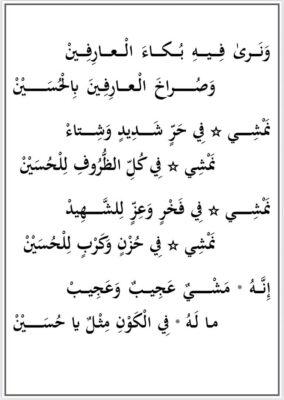 وَنَرىٰ فِيهِ بُكاءَ الْعارِفِينْ
وَصُراخَ الْعارِفِينَ بِالْحُسَيْنْ
نَمْشِي ☆ فِي حَرٍّ شَدِيدٍ وَشِتاءْ
نَمْشِي ☆ فِي كُلِّ الظُّرُوفِ لِلْحُسَيْنْ
نَمْشِي ☆ فِي فَخْرٍ وَعِزٍّ لِلشَّهِيدْ
نَمْشِي ☆ فِي حُزْنٍ وَكَرْبٍ لِلْحُسَيْنْ
إِنَّهُ * مَشْيٌ عَجِيبٌ وَعَجِيبْ
ما لَهُ * فِي الْكَوْنِ مِثْلٌ يا حُسَيْنْ